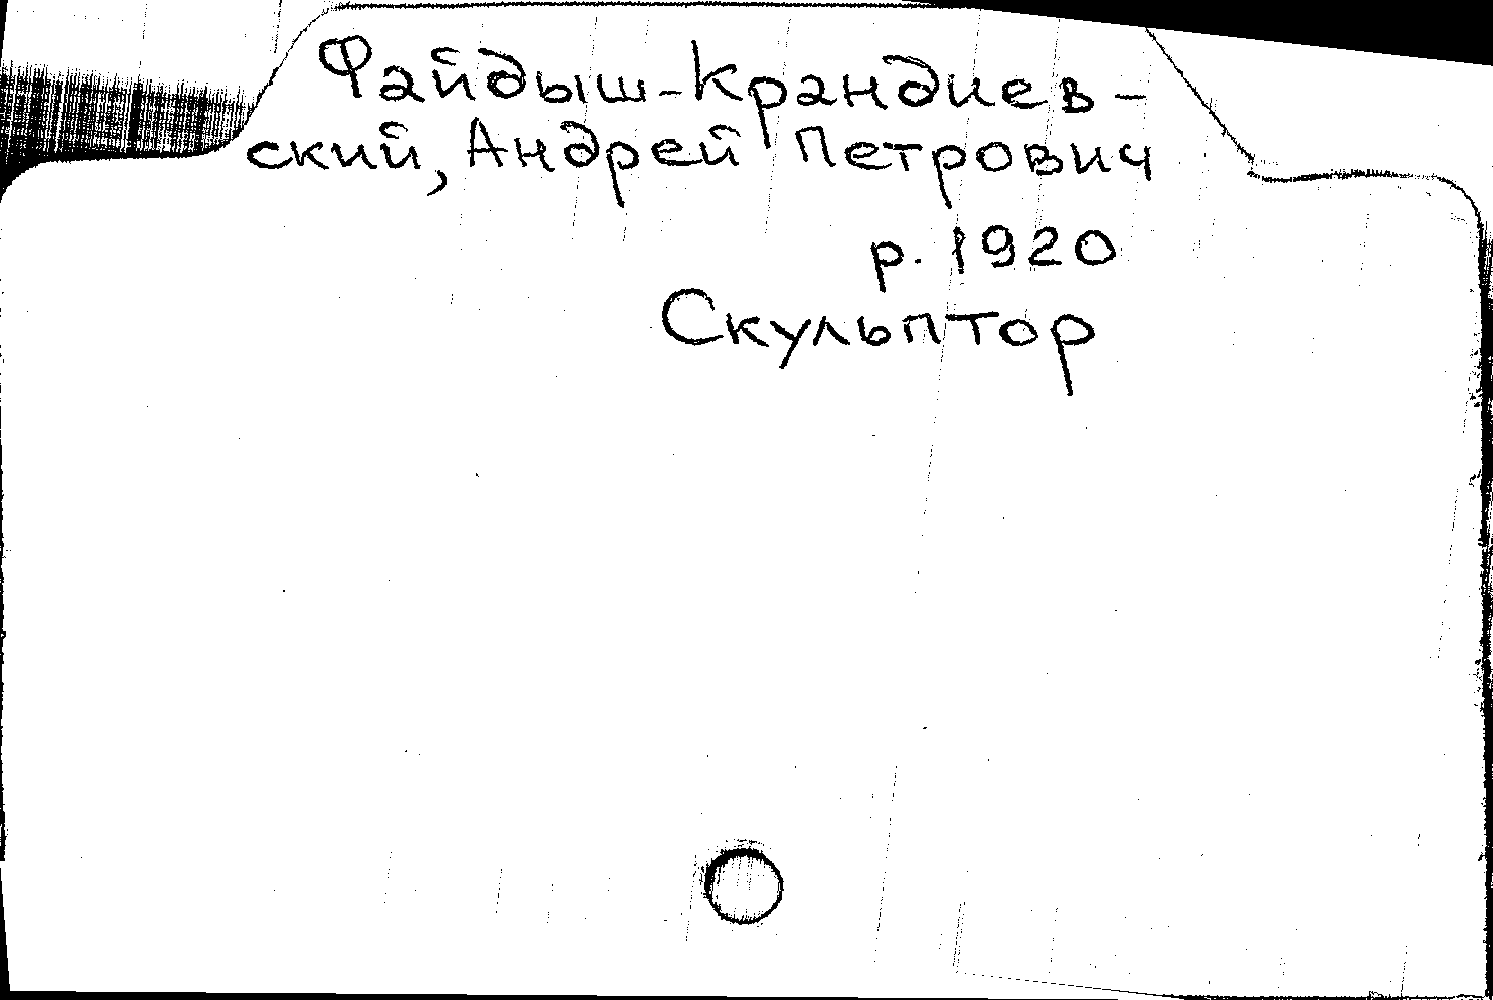 Файдыш-Крандиев-
ский, Андрей Петрович
р. 1920
Скульптор